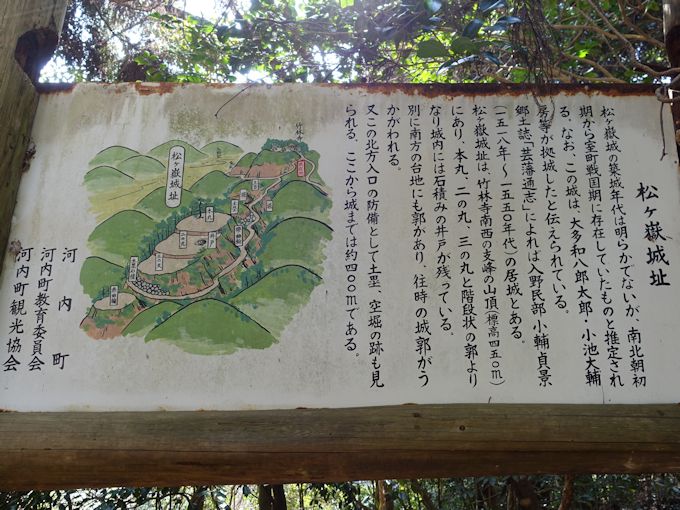 松ヶ嶽城址
松ヶ嶽城の築城年代は明らかでないが、南北朝初
期から室町戦国期に存在していたものと推定され
る。なお、この城は、大多和八郎太郎・小池大輔
房等が拠城したと伝えられている。
郷土誌「芸藩通志」によれば入野民部小輔貞景
(一五一八年〜一五五〇年代)の居城とある。
松ヶ嶽城址は、竹林寺南西の支峰の山頂(標高四五〇m)
にあり、本丸、二の丸、三の丸と階段状の郭より
なり城内には石積みの井戸が残っている。
別に南方の台地にも郭があり、往時の城郭がう
かがわれる。
又この北方入口の防備として土塁、空堀の跡も見
られる。ここから城までは約四〇〇mである。
竹林寺
松ヶ嶽城址
河内町
河内町教育委員会
河内町観光協会